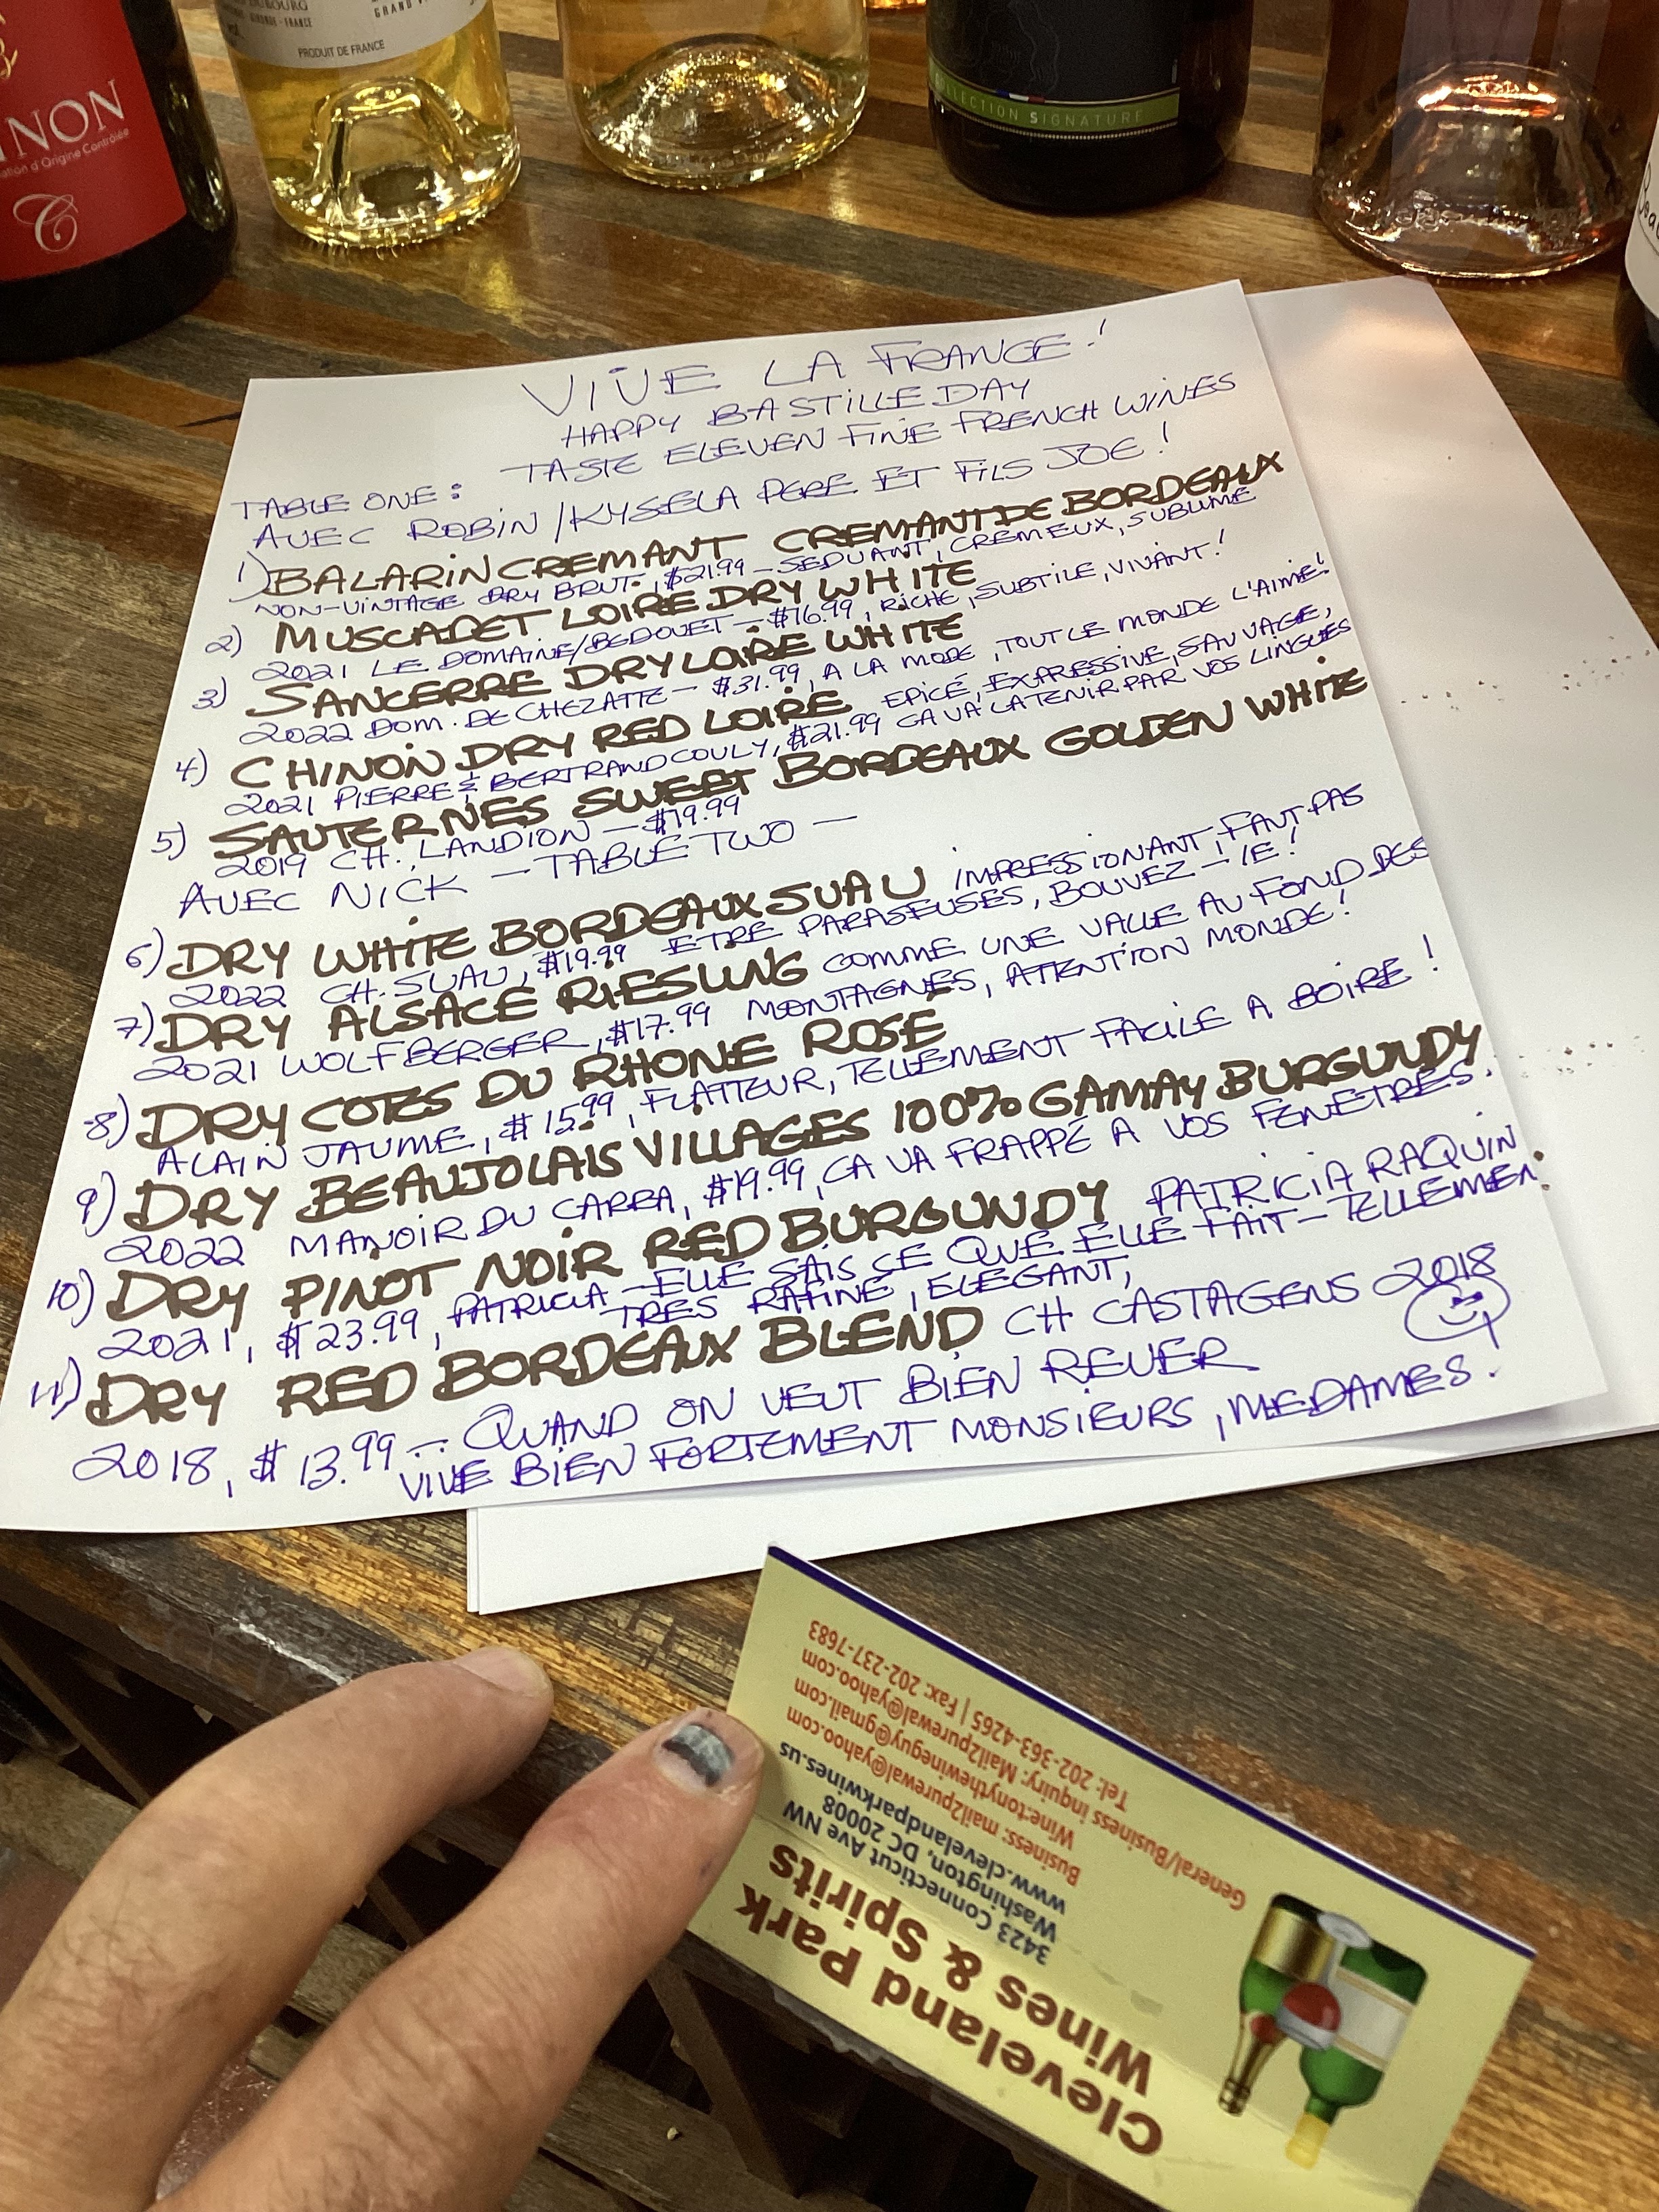 NON
ation d'Origine Contrôlée
C
GRAND
PRODUIT DE FRANCE
LLECTION SIGNATURE
VIVE LA FRANCE!
HAPPY BASTILLE DAY
TASTE ELEVEN FINE FRENCH WINES
TABLE ONE:
AVEC ROBIN/KYSELA PERE ET FILS JOE!
1) BALARIN CREMANT CREMANT DE BORDEAUX
NON-VINTAGE DRY BRUT, $21.99 - SEDUANT, CREMEUX, SUBLIME
2) MUSCADET LOIRE DRY WHITE
2021 LE DOMAINE/BEDOUET - $16.99, RICHE, SUBTILE, VIVANT!
3) SANCERRE DRY LOIRE WHITE
2022 DOM. DE CHEZATTE - $31.99, A LA MODE, TOUT LE MONDE L'AIME!
4) CHINON DRY RED LOIRE EPICÉ, EXPRESSIVE, SAUVAGE,
2021 PIERRE & BERTRAND COULY, $21.99 CA VA LA TENIR PAR VOS LINGUES
5) SAUTERNES SWEET BORDEAUX GOLDEN WHITE
2019 CH. LANDION - $19.99
AVEC NICK - TABLE TWO -
6) DRY WHITE BORDEAUX SUAU IMPRESSIONANT, FAUT PAS
2022 CH. SUAU, $19.99 ETRE PARASEUSES, BOUVEZ-LE!
7) DRY ALSACE RIESLING COMME UNE VALLE AU FOND DES
2021 WOLFBERGER, $17.99 MONTAGNES, ATTENTION MONDE!
8) DRY COTES DU RHONE ROSÉ
ALAIN JAUME, $15.99, FLATTEUR, TELLEMENT FACILE A BOIRE!
9) DRY BEAUJOLAIS VILLAGES 100% GAMAY BURGUNDY
2022 MANOIR DU CARRA, $19.99, CA VA FRAPPÉ A VOS FENETRES.
10) DRY PINOT NOIR RED BURGUNDY PATRICIA RAQUIN
2021, $23.99, PATRICIA - ELLE SAIS CE QUE ELLE FAIT - TELLEMEN.
TRES RAFINÉ, ELEGANT,
11) DRY RED BORDEAUX BLEND CH CASTAGENS 2018
2018, $13.99 - QUAND ON VEUT BIEN REVER
VIVE BIEN FORTEMENT MONSIEURS, MEDAMES.
Cleveland Park
Wines & Spirits
3423 Connecticut Ave NW
Washington, DC 20008
www.clevelandparkwines.us
Business: mail2purewal@yahoo.com
Wine:tonythewineguy@gmail.com
General/Business inquiry: Mail2purewal@yahoo.com
Tel: 202-363-4265 | Fax: 202-237-7683